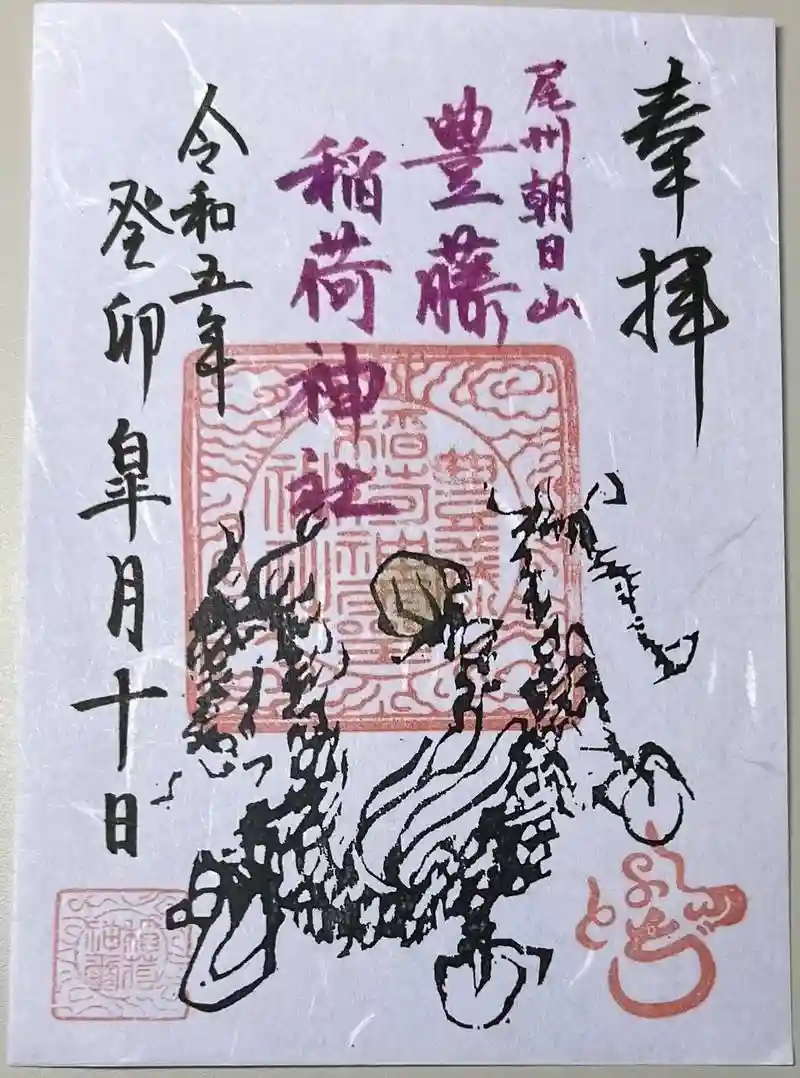 奉拝
尾州朝日山
豊藤
稲荷神社
令和五年
癸卯 皐月十日